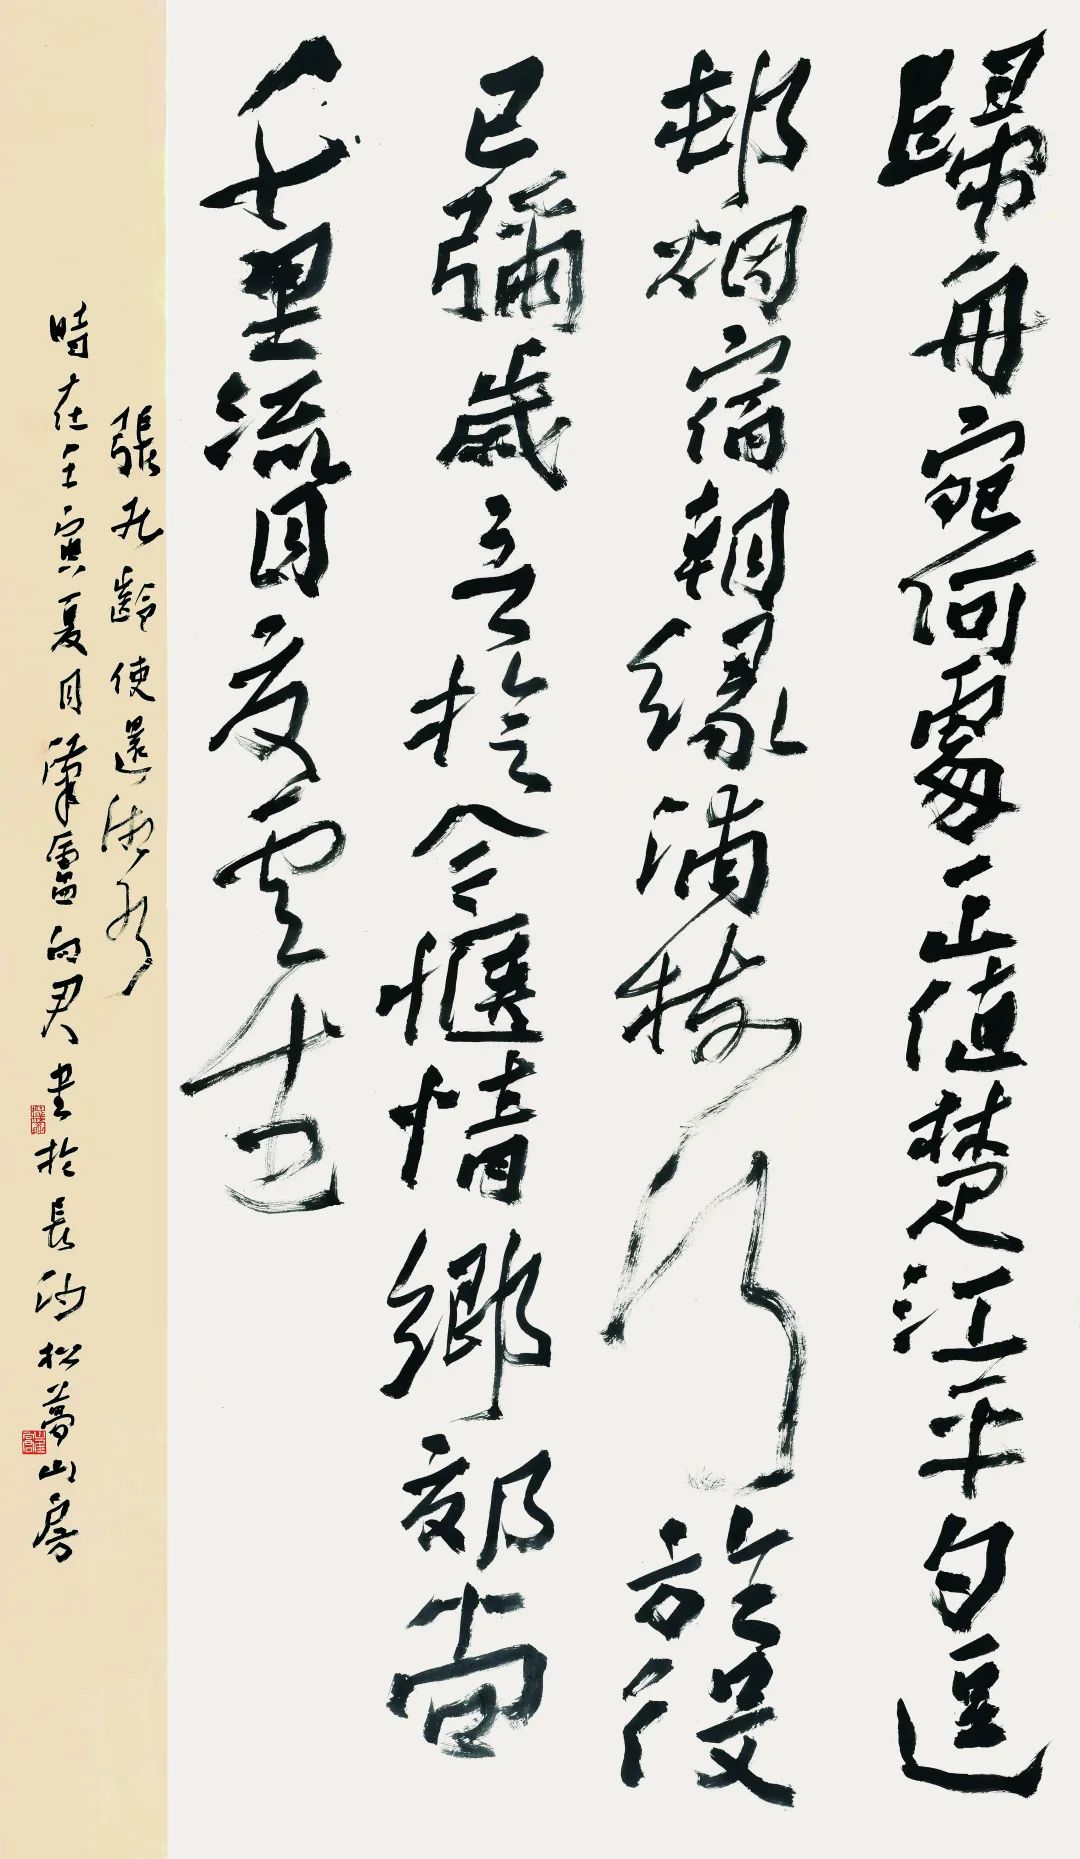 歸舟宛何處正值楚江平夕逗
邨烟宿朝緣浦樹行於役
已彌歲言旋今愜情鄉郊尚
千里流目夏雲生
張九齡使還湘水
時在壬寅夏月廬向君書於長沙松夢山房